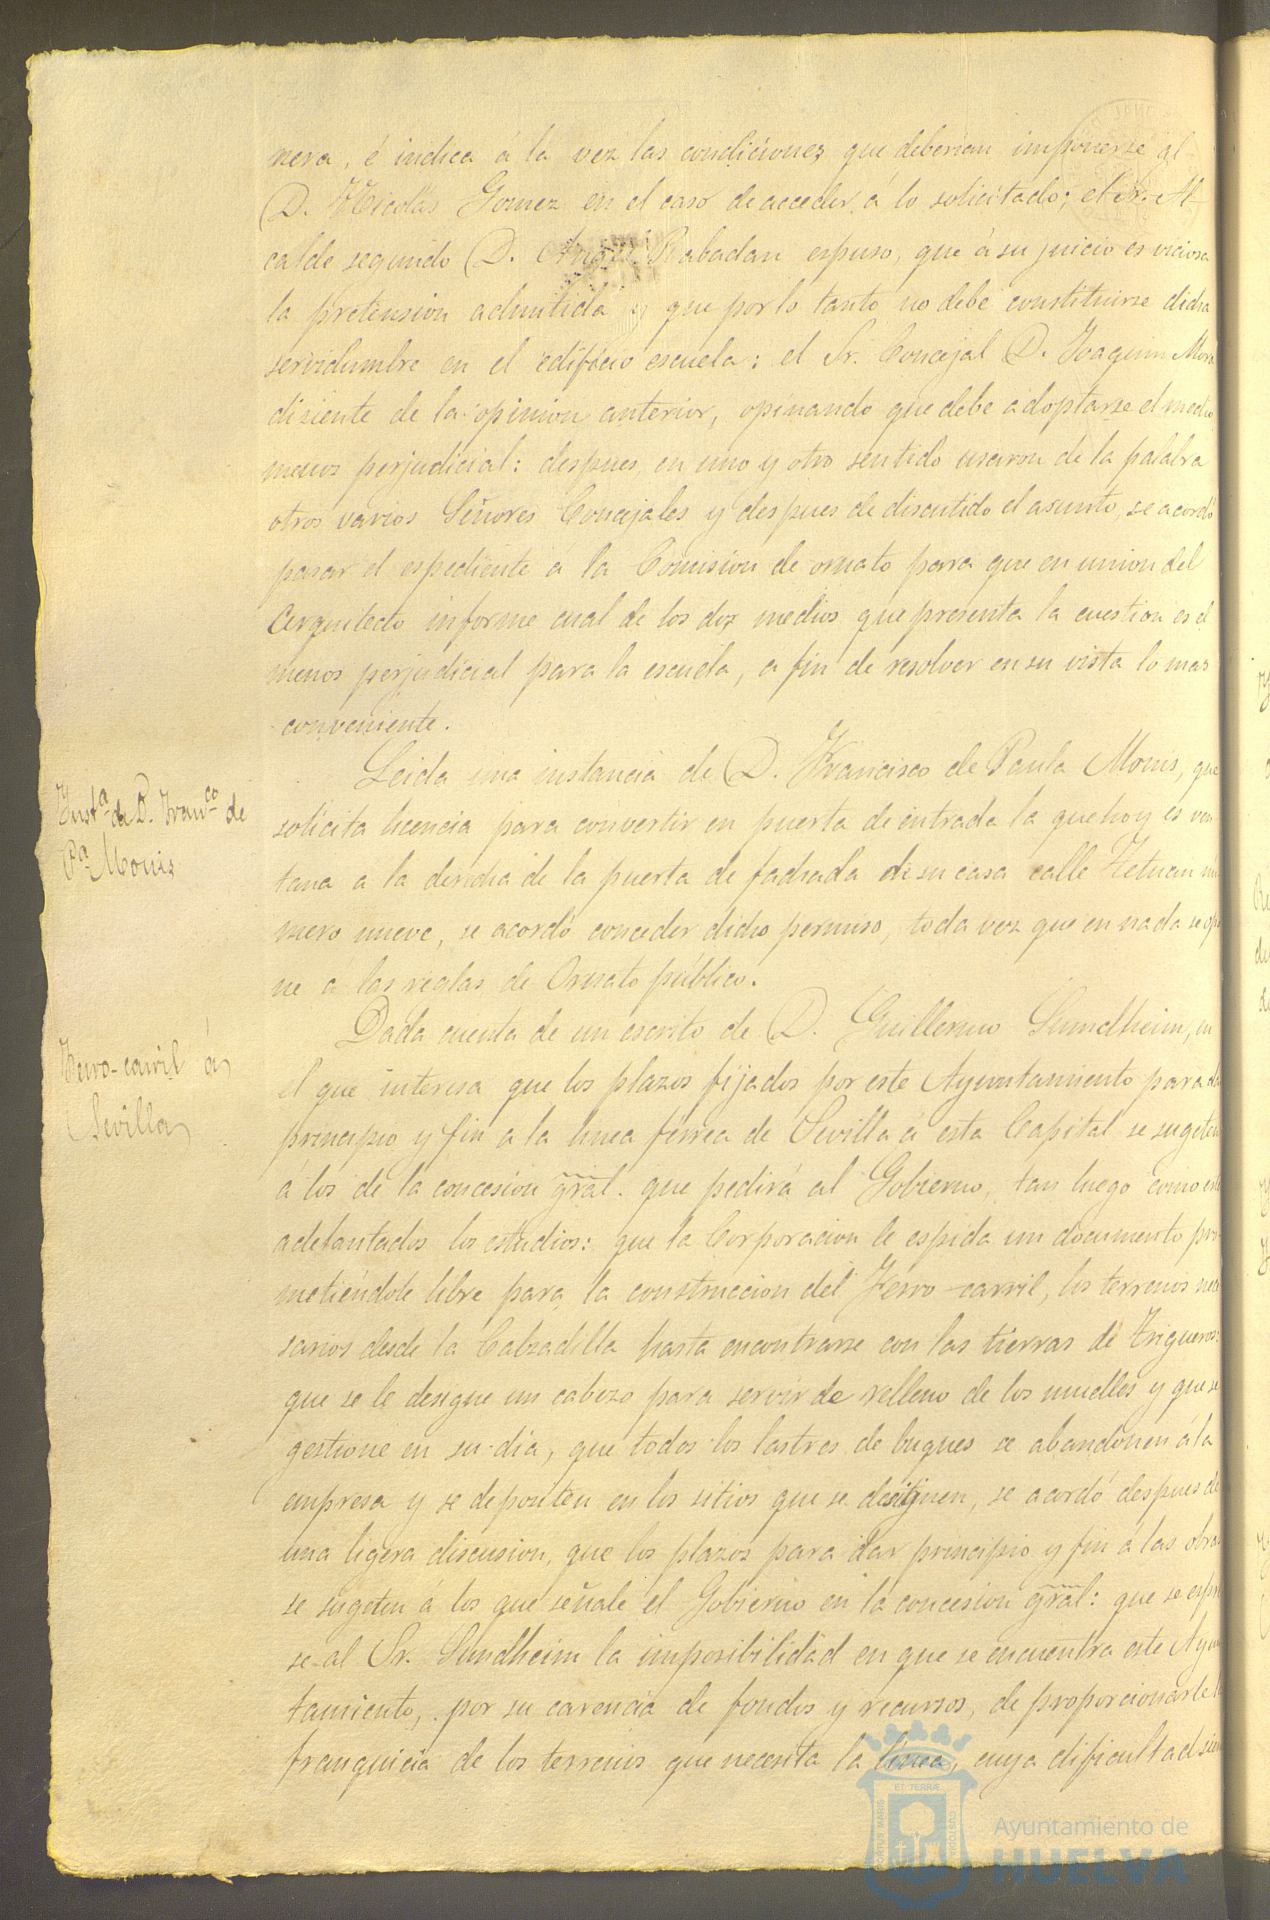 nera, é indica á la vez las condiciones que deberian imponerse al
D. Nicolás Gomez en el caso de acceder á lo solicitado; el Sr. Al-
calde segundo D. Rabadan espuso, que á su juicio es viciosa
la pretension admitida y que por lo tanto no debe constituirse dicha
servidumbre en el edificio escuela: el Sr. Concejal D. Joaquin Mora
disiente de la opinion anterior, opinando que debe adoptarse el medio
menos perjudicial: despues en uno y otro sentido usaron de la palabra
otros varios Señores Concejales y despues de discutido el asunto, se acordó
pasar el espediente á la Comision de ornato para que en union del
Arquitecto informe cual de los dos medios que presenta la cuestion es el
menos perjudicial para la escuela, a fin de resolver en su vista lo mas
conveniente.
Inst.ª de D. Fran.co de
P.ª Monis
Leida una instancia de D. Francisco de Paula Monis, que
solicita licencia para convertir en puerta de entrada la que hoy es ven
tana a la derecha de la puerta de fachada de su casa calle Tetuan nu
mero nueve, se acordó conceder dicho permiso, toda vez que en nada se opo
ne á las reglas de Ornato público.
Ferro-carril á
Sevilla
Dada cuenta de un escrito de D. Guillermo Sundheim, en
el que interesa que los plazos fijados por este Ayuntamiento para dar
principio y fin a la linea férrea de Sevilla á esta Capital se sugeten
á los de la concesion gral. que pedirá al Gobierno, tan luego como esté
adelantados los estudios: que la Corporacion le espida un documento pro
metiéndole libre para la construccion del Ferro-carril, los terrenos nece
sarios desde la Calzadilla hasta encontrarse con las tierras de Trigueros:
que se le designe un cabezo para servir de relleno de los muelles y que se
gestione en su dia, que todos los lastres de buques se abandonen á la
empresa y se depositen en los sitios que se designen, se acordó despues de
una ligera discusion, que los plazos para dar principio y fin á las obras
se sugeten á los que señale el Gobierno en la concesion gral: que se espre
se al Sr. Sundheim la imposibilidad en que se encuentra este Ayun
tamiento, por su carencia de fondos y recursos, de proporcionarle la
franquicia de los terrenos que necesita la linea, cuya dificultad
Ayuntamiento de
HUELVA